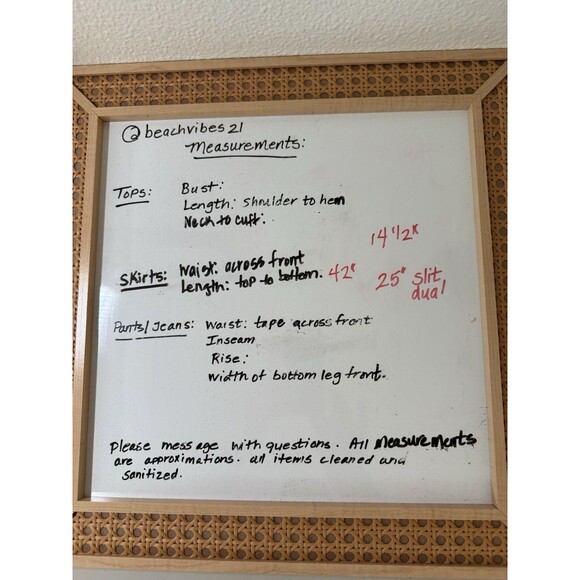 @beachvibes21
Measurements:
Tops: Bust:
Length: Shoulder to hem
Neck to cuff:
14 1/2"
Skirts: Waist: across front
Length: top to bottom. 42"
25" slit
dual
Pants/Jeans: Waist: tape across front
Inseam
Rise:
width of bottom leg front.
Please message with questions. All measurements
are approximations. all items cleaned and
sanitized.